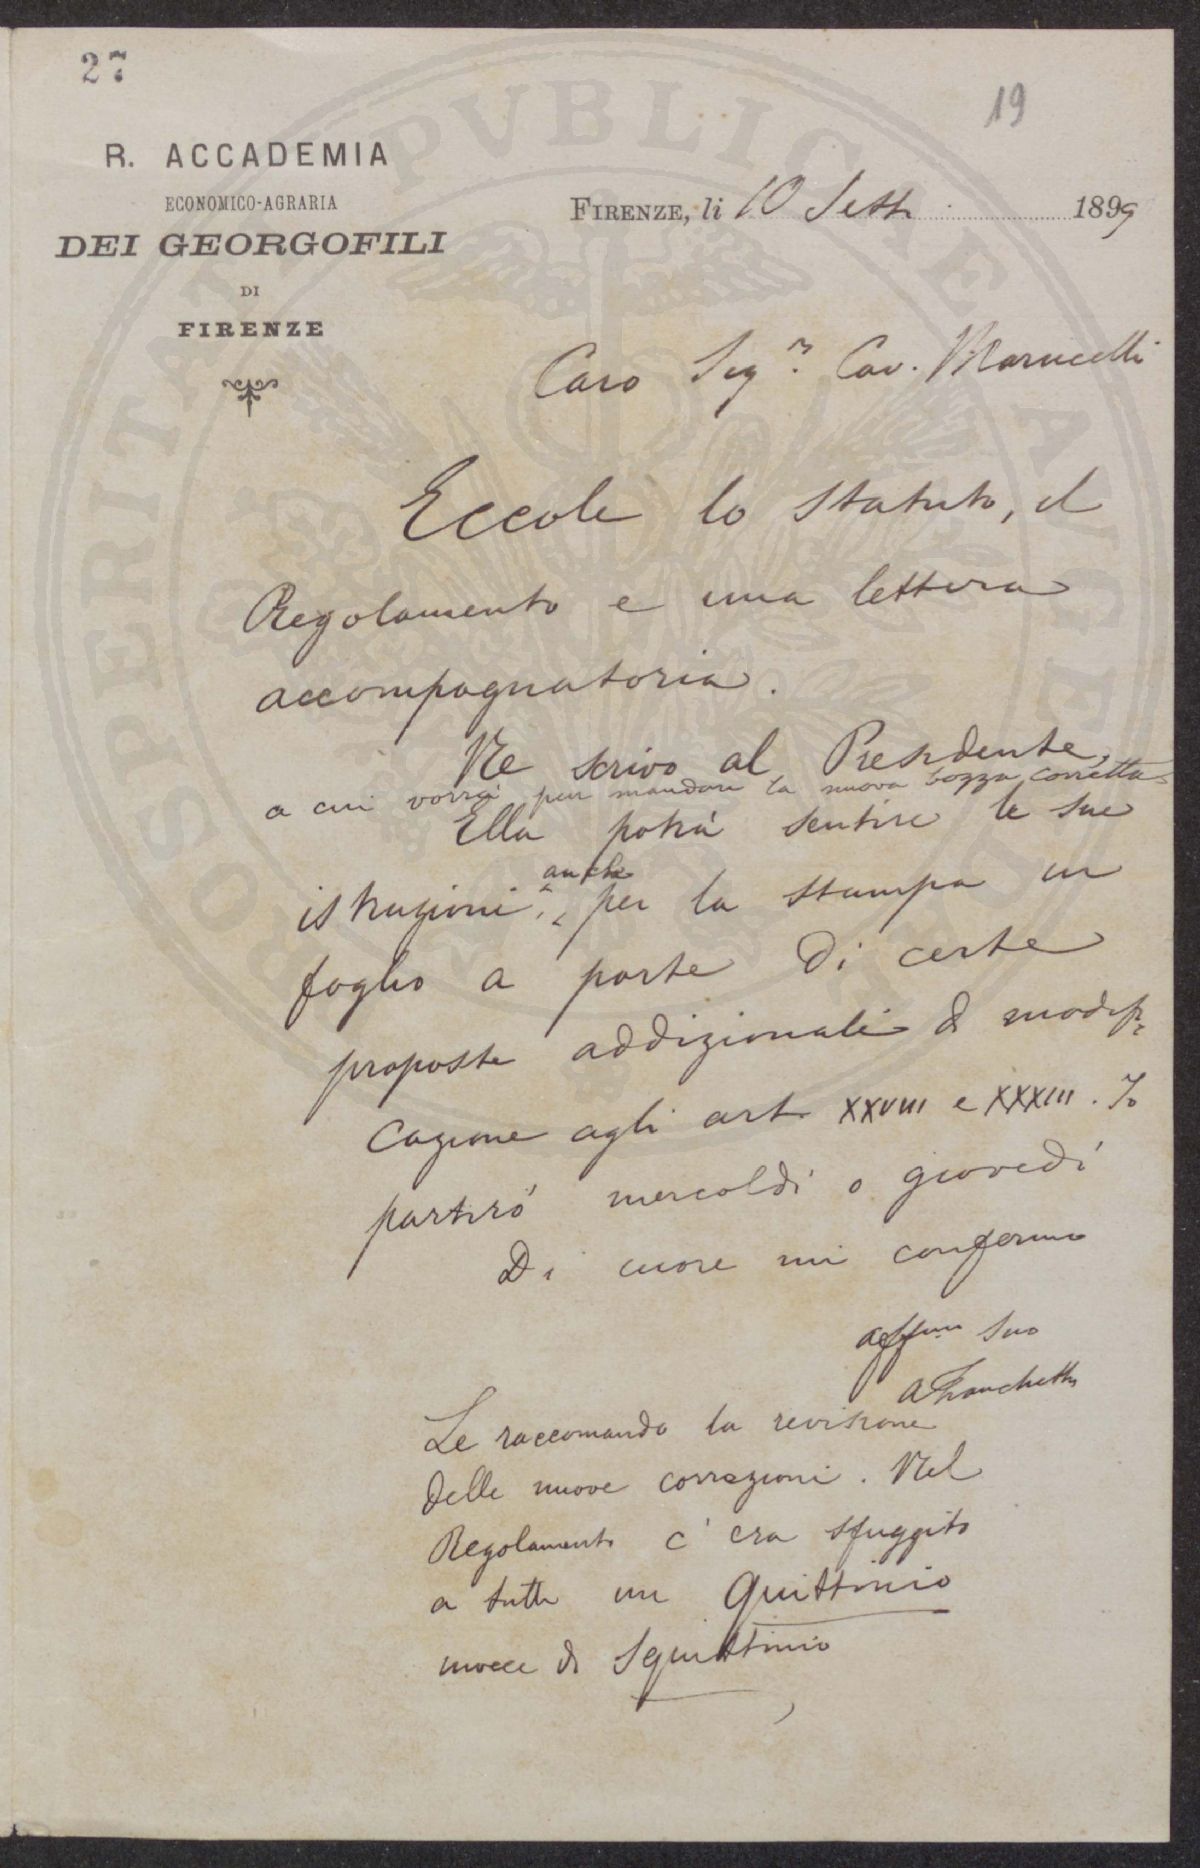 27
19
R. ACCADEMIA
ECONOMICO-AGRARIA
DEI GEORGOFILI
DI
FIRENZE
FIRENZE, li 10 Sett. 1899
Caro Sigr. Cav. Marucelli
Eccole lo statuto, il
Regolamento e una lettera
accompagnatoria.
Ne scrivo al Presidente,
a cui vorrà pur mandare la nuova bozza corretta
Ella potrà sentire le sue
istruzioni, anche per la stampa in
foglio a parte di certe
proposte addizionali di modifi-
cazione agli art. XXVIII e XXXIII. Io
partirò mercoldì o giovedì
Di cuore mi confermo
affmo suo
A Franchetti
Le raccomando la revisione
delle nuove correzioni. Nel
Regolamento c'era sfuggito
a tutti un Quittinio
invece di Squittinio
PROSPERITATI PVBLICAE AVGENDAE